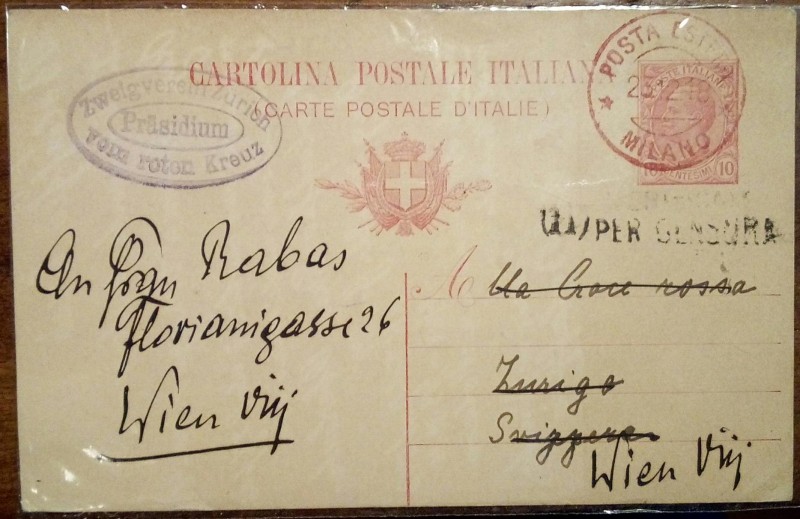 CARTOLINA POSTALE ITALIAN
(CARTE POSTALE D'ITALIE)
Zweigverein Zürich
Präsidium
vom roten Kreuz
POSTA ESTERA
MILANO
POSTE ITALIANE
10 CENTESIMI 10
PER CENSURA
An Frau Rabas
Florianigasse 26
Wien VIII
Alla Croce rossa
Zurigo
Svizzera
Wien VIII